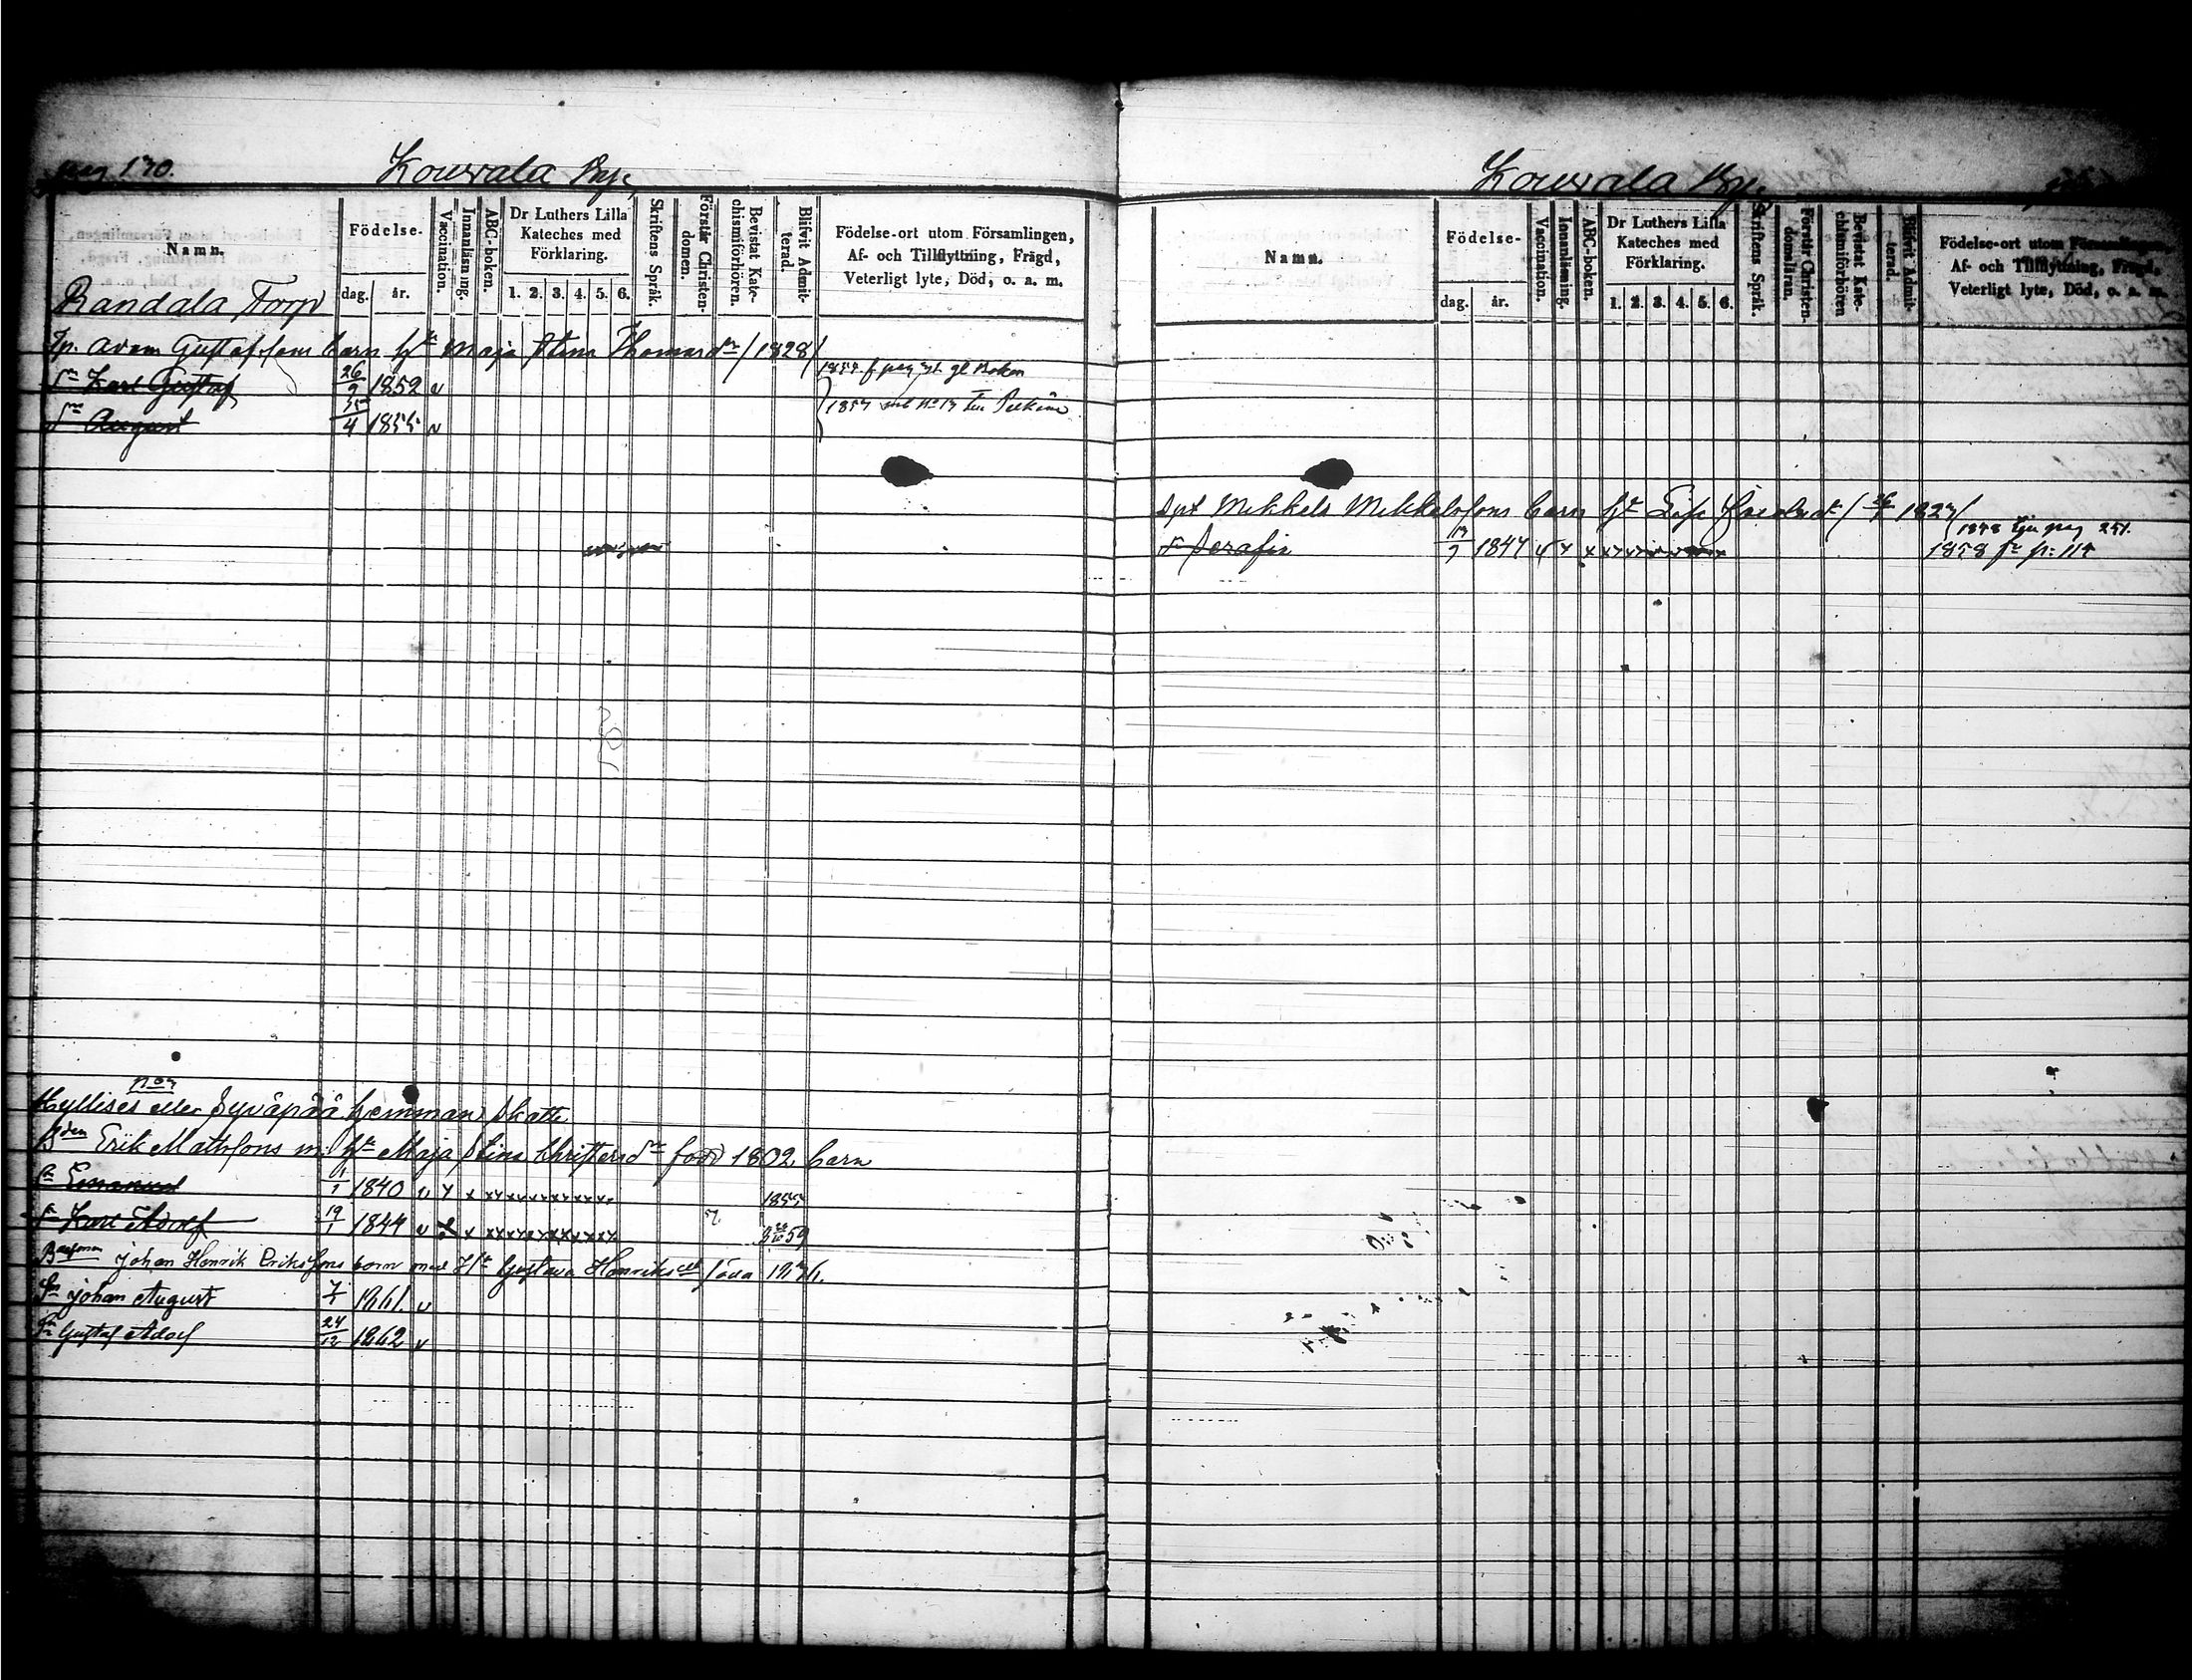 pag 170.
Kouvala By.
Namn.
Födelse-
dag.
år.
Vaccination.
Innanläsning.
ABC-boken.
Dr Luthers Lilla
Kateches med
Förklaring.
1. 2. 3. 4. 5. 6.
Skriftens Språk.
Förstår Christen-
domen.
Bevistat Kate-
chismiförhören.
Blifvit Admit-
terad.
Födelse-ort utom Församlingen,
Af- och Tillflyttning, Frägd,
Veterligt lyte, Död, o. a. m.
Randala Torp
Tp. Adam Gustafssons barn hu Maja Stina Thomasdr / 1828 /
Sn Karl Gustaf 26/9 1852 v
Sn August 4 1855 v
1857 gl Boken
1857 No 13
No 7
Hyllises eller Syväpää hemman Skatte
Bden Erik Mattssons m. hu Maja Stina Christersdr född 1802 barn
Sn Emanuel 1/1 1840 v x x x x x x x x x x x 1855
Sn Karl Adolf 19/1 1844 v x x x x x x x x x x x 59
Johan Henrik Erikssons barn med Hu Gustava Henriksdr född
Sn Johan August 1861 v
Sn Gustaf Adolf 24/12 1862 v
Kouvala By.
Namn.
Födelse-
dag.
år.
Vaccination.
Innanläsning.
ABC-boken.
Dr Luthers Lilla
Kateches med
Förklaring.
1. 2. 3. 4. 5. 6.
Skriftens Språk.
Förstår Christen-
domsläran.
Bevistat Kate-
chismiförhören
Blifvit Admit-
terad.
Födelse-ort utom Församlingen,
Af- och Tillflyttning, Frägd,
Veterligt lyte, Död, o. a. m.
Mikkels Mikkelssons barn hu Lisa / 1827 /
Sn Serafin 1847
1858 pag 251.
1858 p. 114